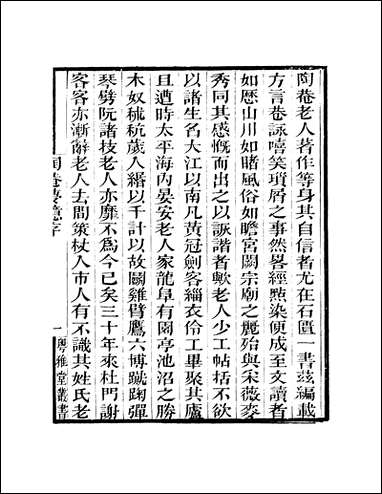 陶菴老人著作等身其自信者尤在石匱一書茲編載
方言巷詠嘻笑瑣屑之事然畧經點染便成至文讀者
如歷山川如睹風俗如瞻宮闕宗廟之麗殆與采薇麥
秀同其感慨而出之以詼諧者歟老人少工帖括不欲
以諸生名大江以南凡黃冠劍客緇衣伶工畢聚其廬
且遭時太平海內晏安老人家龍阜有園亭池沼之勝
木奴秫秔歲入緡以千計以故鬬雞臂鷹六博蹴踘彈
琴劈阮諸技老人亦靡不爲今已矣三十年來杜門謝
客客亦漸辭老人去間策杖入市人有不識其姓氏老
陶菴夢憶序
一
粵雅堂叢書